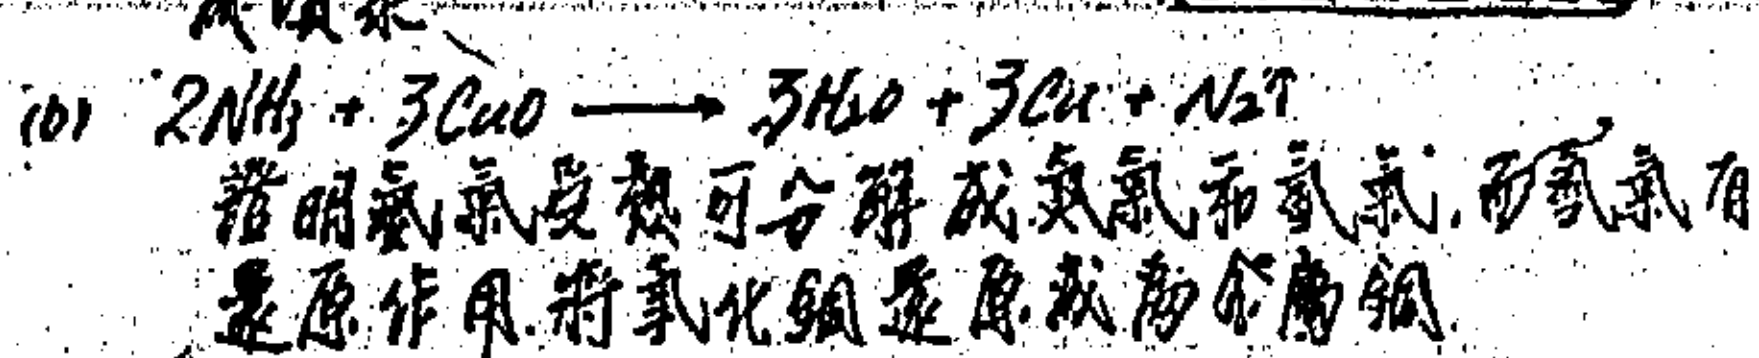 (b) 2NH₃ + 3CuO ⟶ 3H₂O + 3Cu + N₂↑
證明氨氣受熱可分解成氮氣和氫氣,而氫氣有
還原作用.將氧化銅還原成為金屬銅.